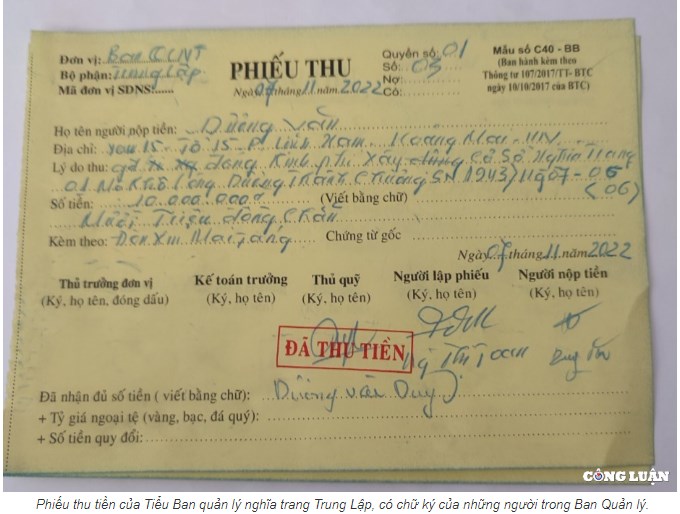 Đơn vị: Ban QLNT
Bộ phận: Trung Lập
Mã đơn vị SDNS:
PHIẾU THU
Ngày 07 tháng 11 năm 2022
Quyển số: 01
Số: 03
Nợ:
Có:
Mẫu số C40 - BB
(Ban hành kèm theo
Thông tư 107/2017/TT- BTC
ngày 10/10/2017 của BTC)
Họ tên người nộp tiền: Dương Văn
Địa chỉ: Tổ 15 - P. Lĩnh Nam - Hoàng Mai - HN
Lý do thu: đóng Kinh phí Xây dựng Cơ Sở Nghĩa Trang
01 Mộ Khổ Công Dương Thành Chương SN 1943
Số tiền: 10.000.000 (Viết bằng chữ) (06)
Mười Triệu đồng Chẵn
Kèm theo: Đơn Xin Mai táng Chứng từ gốc
Ngày 07 tháng 11 năm 2022
Thủ trưởng đơn vị
(Ký, họ tên, đóng dấu)
Kế toán trưởng
(Ký, họ tên)
Thủ quỹ
(Ký, họ tên)
Người lập phiếu
(Ký, họ tên)
Người nộp tiền
(Ký, họ tên)
ĐÃ THU TIỀN
Đã nhận đủ số tiền ( viết bằng chữ): Dương Văn Duy
+ Tỷ giá ngoại tệ (vàng, bạc, đá quý):
+ Số tiền quy đổi:
CÔNG LUẬN
Phiếu thu tiền của Tiểu Ban quản lý nghĩa trang Trung Lập, có chữ ký của những người trong Ban Quản lý.